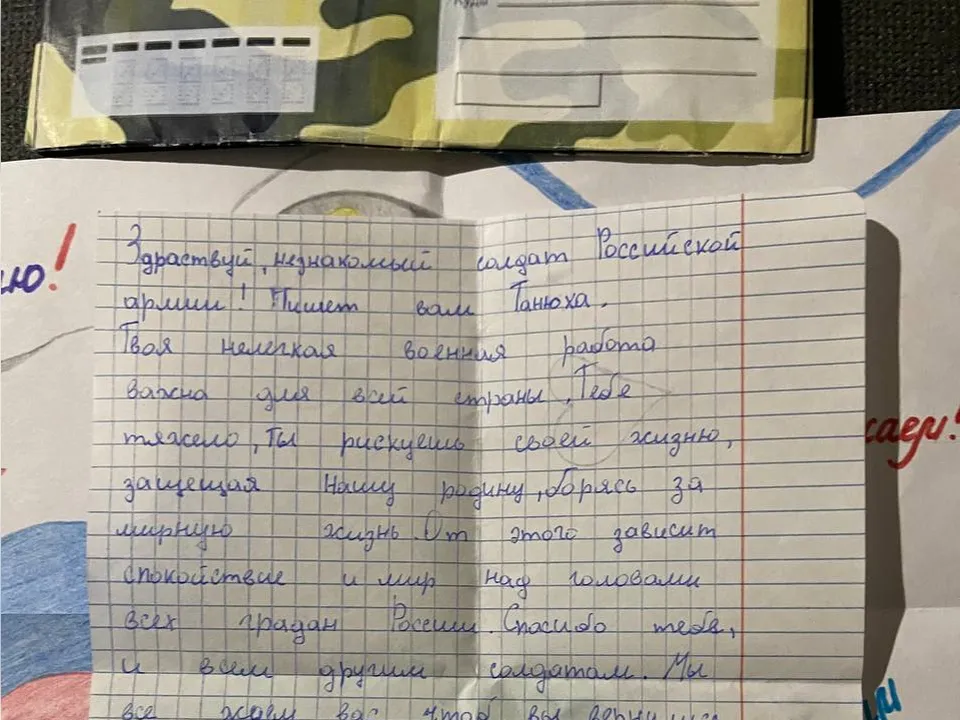 Куда
ю!
Здраствуй, незнакомый солдат Российской
армии! Пишет вам Танюха.
Твоя нелегкая военная работа
важна для всей страны. Тебе
тяжело, ты рискуешь своей жизню,
защещая Нашу родину, борясь за
мирную жизнь. От этого зависит
спокойствие и мир над головами
всех градан России. Спасибо тебе,
и всем другим солдатам. Мы
все ждем вас чтоб вы вернулись
саем!